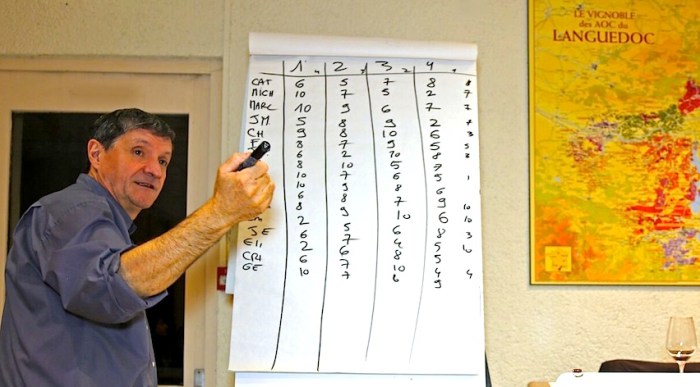 1 2 3 4
CAT 6 5 7 8
MICH 10 7 5 2 7
MARC 10 9 6 7 2
JM 5 8 9 2 7
CH 9 8 10 6 3
8 7 9 5 5
6 2 10 8 8
8 10 5 7
10 7 6 5 1
10 9 8 6
6 8 7 9 10
8 9 10 6 10
2 5 6 8 3
JE 6 7 4 5
Ell 2 6 8 5
CRI 6 7 10 4
GE 10 7 6 9 4
LE VIGNOBLE
des AOC du
LANGUEDOC